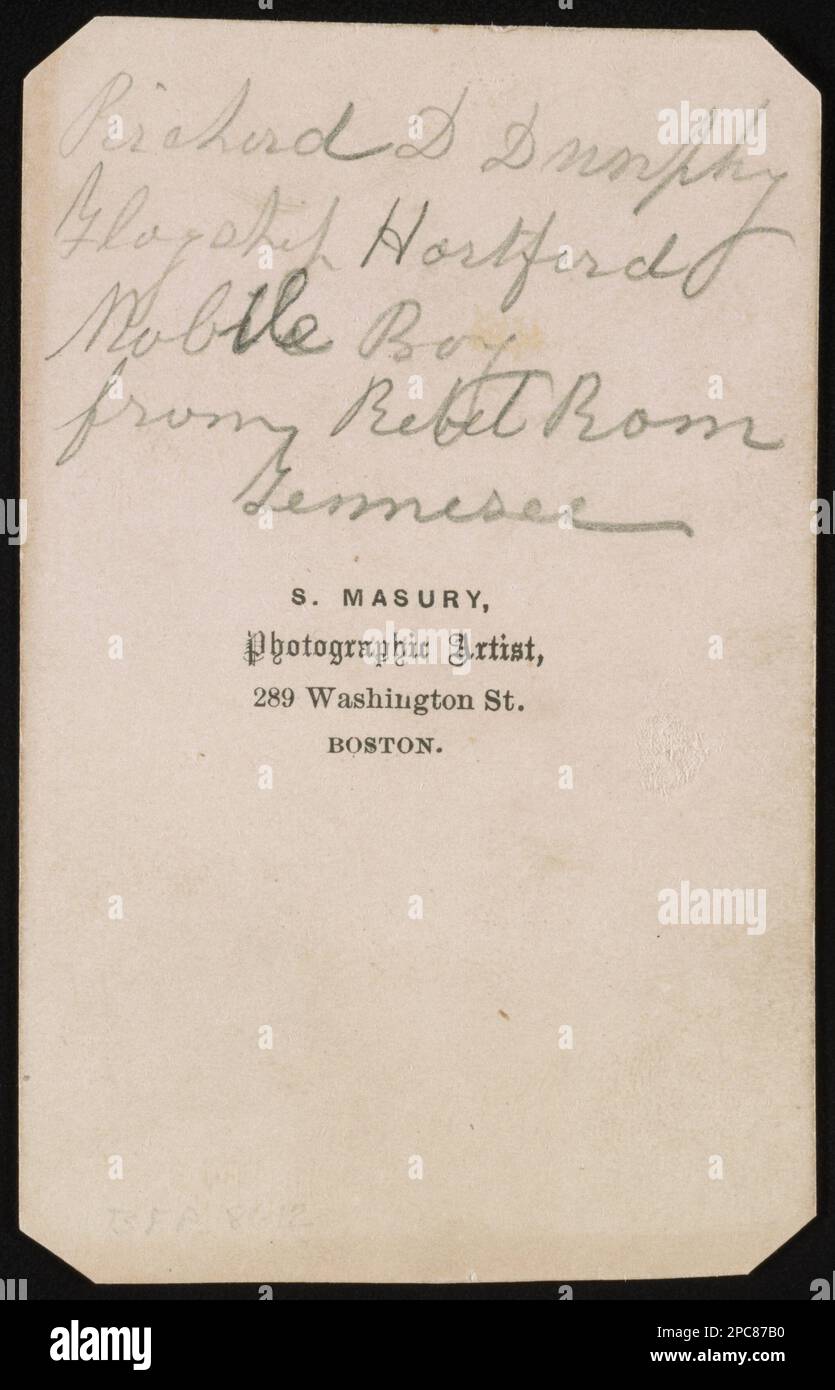 Richard D Dunphy
Flagship Hartford
Mobile Bay
from Rebel Ram
Tennesee
S. MASURY,
Photographic Artist,
289 Washington St.
BOSTON.
alamy
alamy
Image ID: 2PC87B0
www.alamy.com